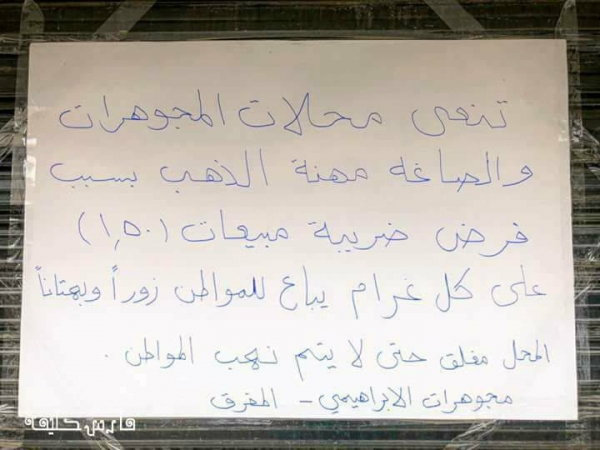 تنعى محلات المجوهرات
والصاغه مهنة الذهب بسبب
فرض ضريبة مبيعات (١,٥٠)
على كل غرام يباع للمواطن زوراً وبهتاناً
المحل مغلق حتى لا يتم نهب المواطن .
مجوهرات الابراهيمي - المفرق
فارس خليفة